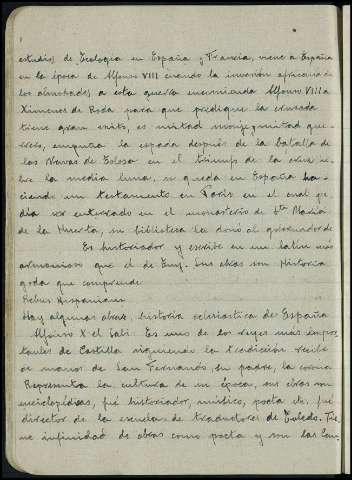 estudios de Teología en España y Francia, viene a España
en la época de Alfonso VIII cuando la invasión africana de
los almohades a esta guerra encomienda Alfonso VIII a
Ximenes de Rada para que predique la cruzada
tiene gran exito, es mitad monje y mitad gue-
rrero, empuña la espada después de la batalla de
las Navas de Tolosa en el triunfo de la cruz so-
bre la media luna, se queda en España ha-
ciendo un testamento en París en el cual pe-
día ser enterrado en el monasterio de Sta María
de la Huerta, su biblioteca la donó al
Es historiador y escribe en un latin más
armonioso que el de Sus obras son Historia
goda que comprende
Rebus Hispaniam
Hay algunas obras, historia eclesiastica de España
Alfonso X el Sabio Es uno de los reyes más impor-
tantes de Castilla siguiendo la tradición recibe
de manos de San Fernando, su padre, la corona
Representa la cultura de su época, sus obras son
enciclopédicas, fué historiador, místico, poeta etc. fué
director de la escuela de traductores de Toledo. Tie-
ne infinidad de obras como poeta y son las Can-